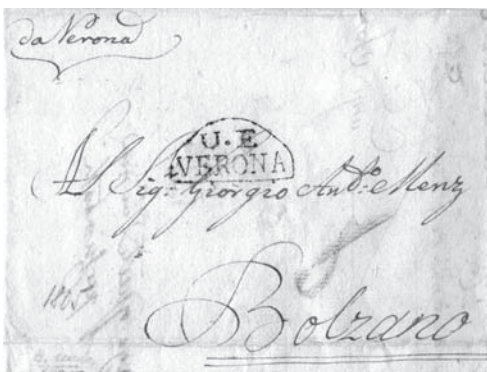 da Verona
U.E
VERONA
Al Sig.r Giorgio And.a Menz
1805
Bolzano